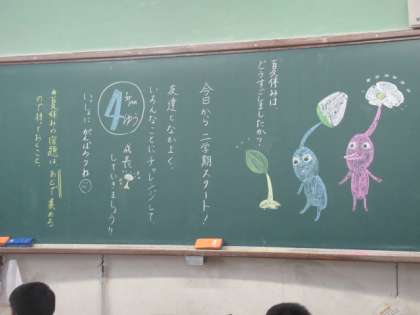 夏休みは
どうすごしましたか?
今日から二学期スタート!
友達となかよく、
いろんなことにチャレンジして
成長
していきましょう!!
4
ゆう
いっしょにがんばろうね
夏休みの宿題はあとで集める
ので待っておくこと。